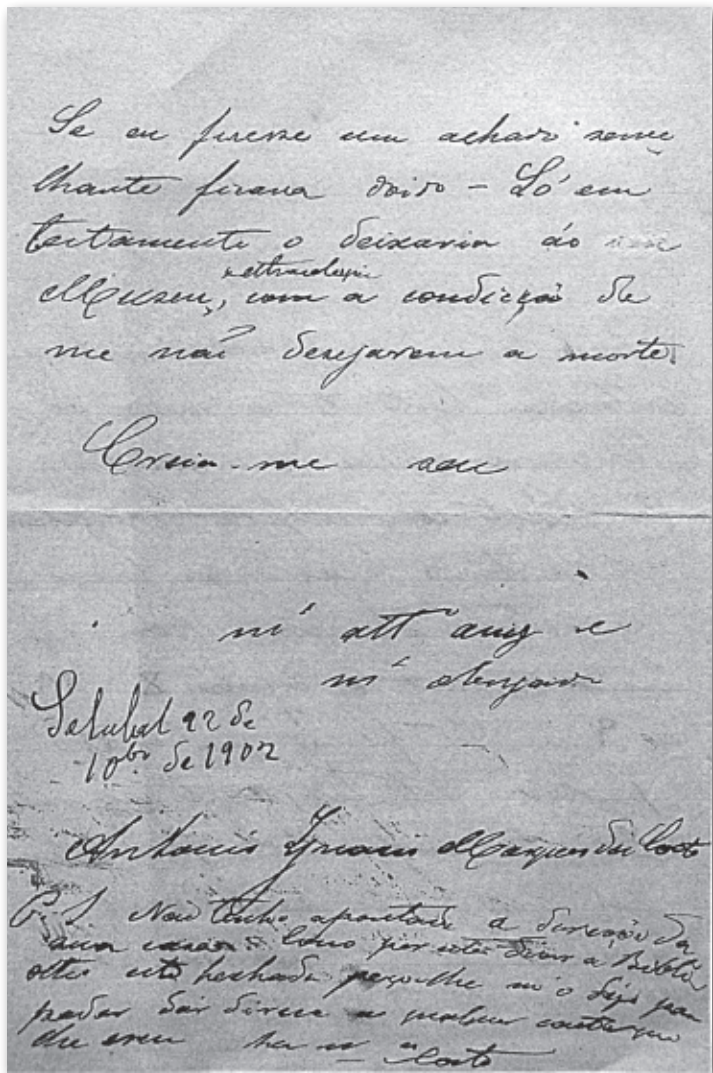 Se eu fizesse um achado seme
lhante ficava doido – Só em
testamento o deixaria ao
Museu, ethnologico com a condicção de
me não desejarem a morte.
Creia-me seu
m.to att.o amig e
m.to obrigado
Setubal 22 de
10bro de 1902
Antonio Ignacio Marques da Costa
P. S Não tenho apontada a direcção da
sua casa. Como por estes dias a Biblio
está fechada peço-lhe m'o diga para
poder dar
lhe
Costa